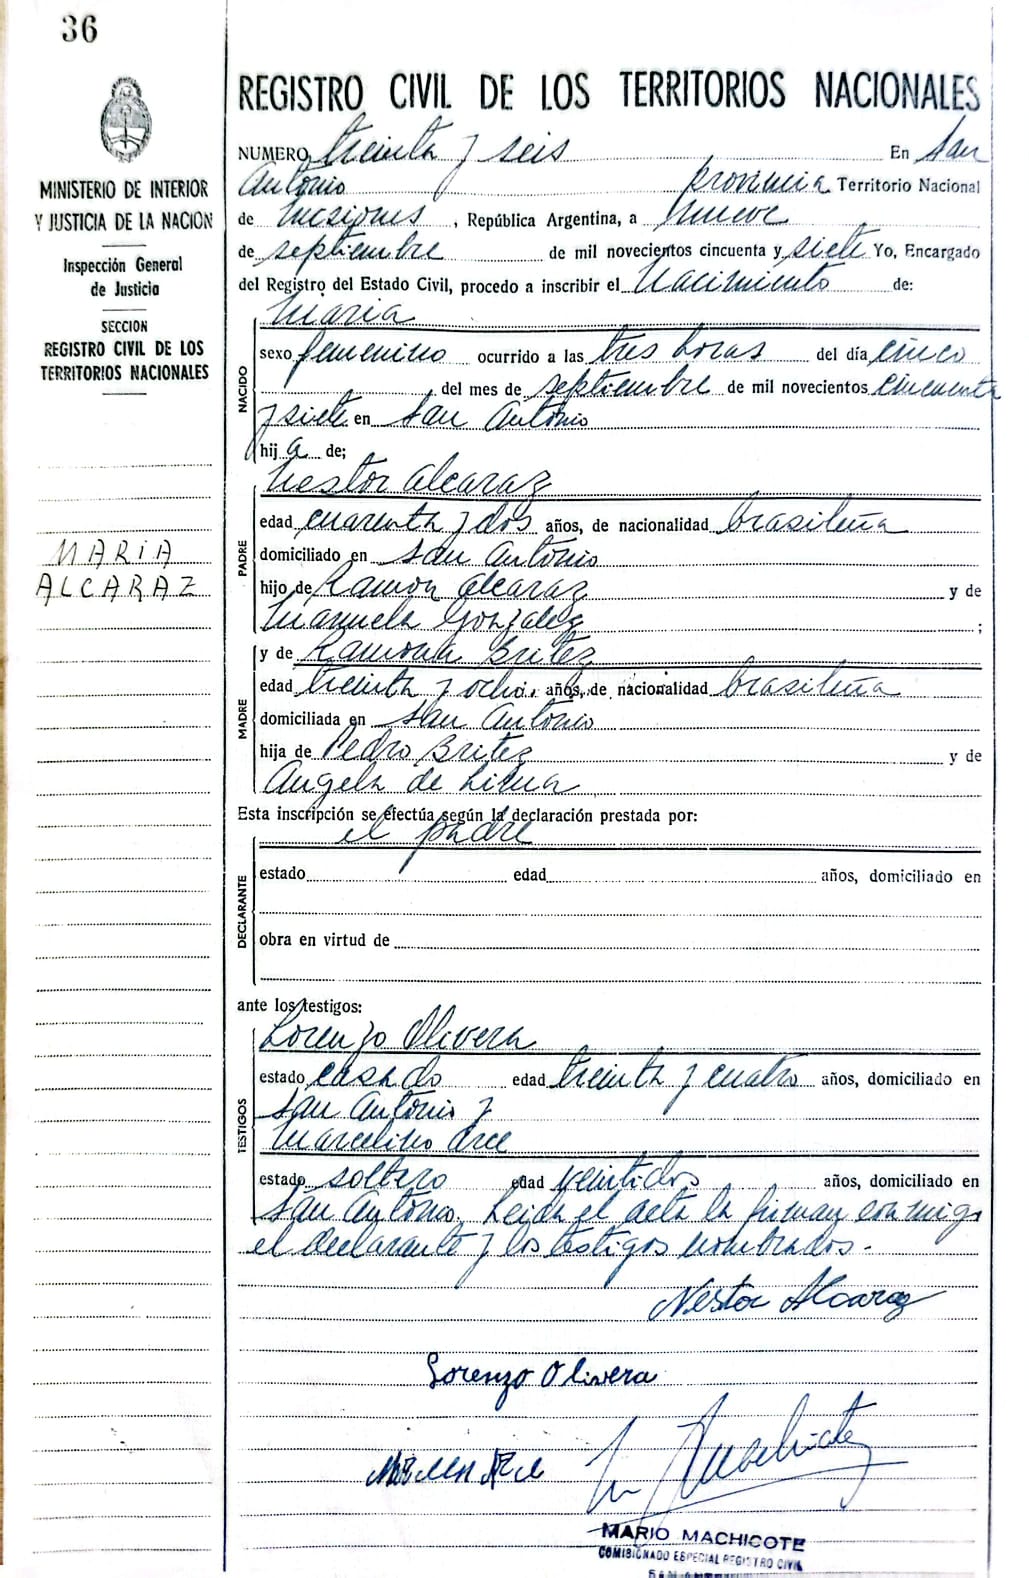 36
MINISTERIO DE INTERIOR
Y JUSTICIA DE LA NACION
Inspección General
de Justicia
SECCION
REGISTRO CIVIL DE LOS
TERRITORIOS NACIONALES
MARIA
ALCARAZ
REGISTRO CIVIL DE LOS TERRITORIOS NACIONALES
NUMERO treinta y seis En San
Antonio provincia Territorio Nacional
de Misiones, República Argentina, a nueve
de septiembre de mil novecientos cincuenta y siete Yo, Encargado
del Registro del Estado Civil, procedo a inscribir el Nacimiento de:
Maria
NACIDO
sexo femenino ocurrido a las tres horas del día cinco
del mes de septiembre de mil novecientos cincuenta
y siete en San Antonio
hija de;
Nestor Alcaraz
PADRE
edad cuarenta y dos años, de nacionalidad brasileña
domiciliado en San Antonio
hijo de Ramon Alcaraz y de
Manuela Gonzalez ;
y de Ramona Britez
MADRE
edad treinta y ocho años, de nacionalidad brasileña
domiciliada en San Antonio
hija de Pedro Britez y de
Angela de Lima
Esta inscripción se efectúa según la declaración prestada por:
el padre
DECLARANTE
estado edad años, domiciliado en
obra en virtud de
ante los testigos:
Lorenzo Olivera
TESTIGOS
estado casado edad treinta y cuatro años, domiciliado en
San Antonio y
Marcelino Arce
estado soltero edad veintidos años, domiciliado en
San Antonio. Leida el acta la firman conmigo
el declarante y los testigos nombrados.-
Nestor Alcaraz
Lorenzo Olivera
MARIO MACHICOTE
COMISIONADO ESPECIAL REGISTRO CIVIL